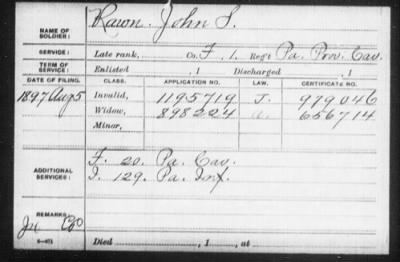 NAME OF SOLDIER: Rawn John S.
SERVICE: Late rank, Co. F, 1. Reg't Pa. Prov. Cav.
TERM OF SERVICE: Enlisted , 1 Discharged , 1
DATE OF FILING. CLASS. APPLICATION NO. LAW. CERTIFICATE NO.
1897 Aug 5 Invalid, 1195719 J. 979046
Widow, 898224 656714
Minor,
ADDITIONAL SERVICES: F. 20. Pa. Cav.
I. 129. Pa. Inf.
REMARKS:
Died , 1 , at